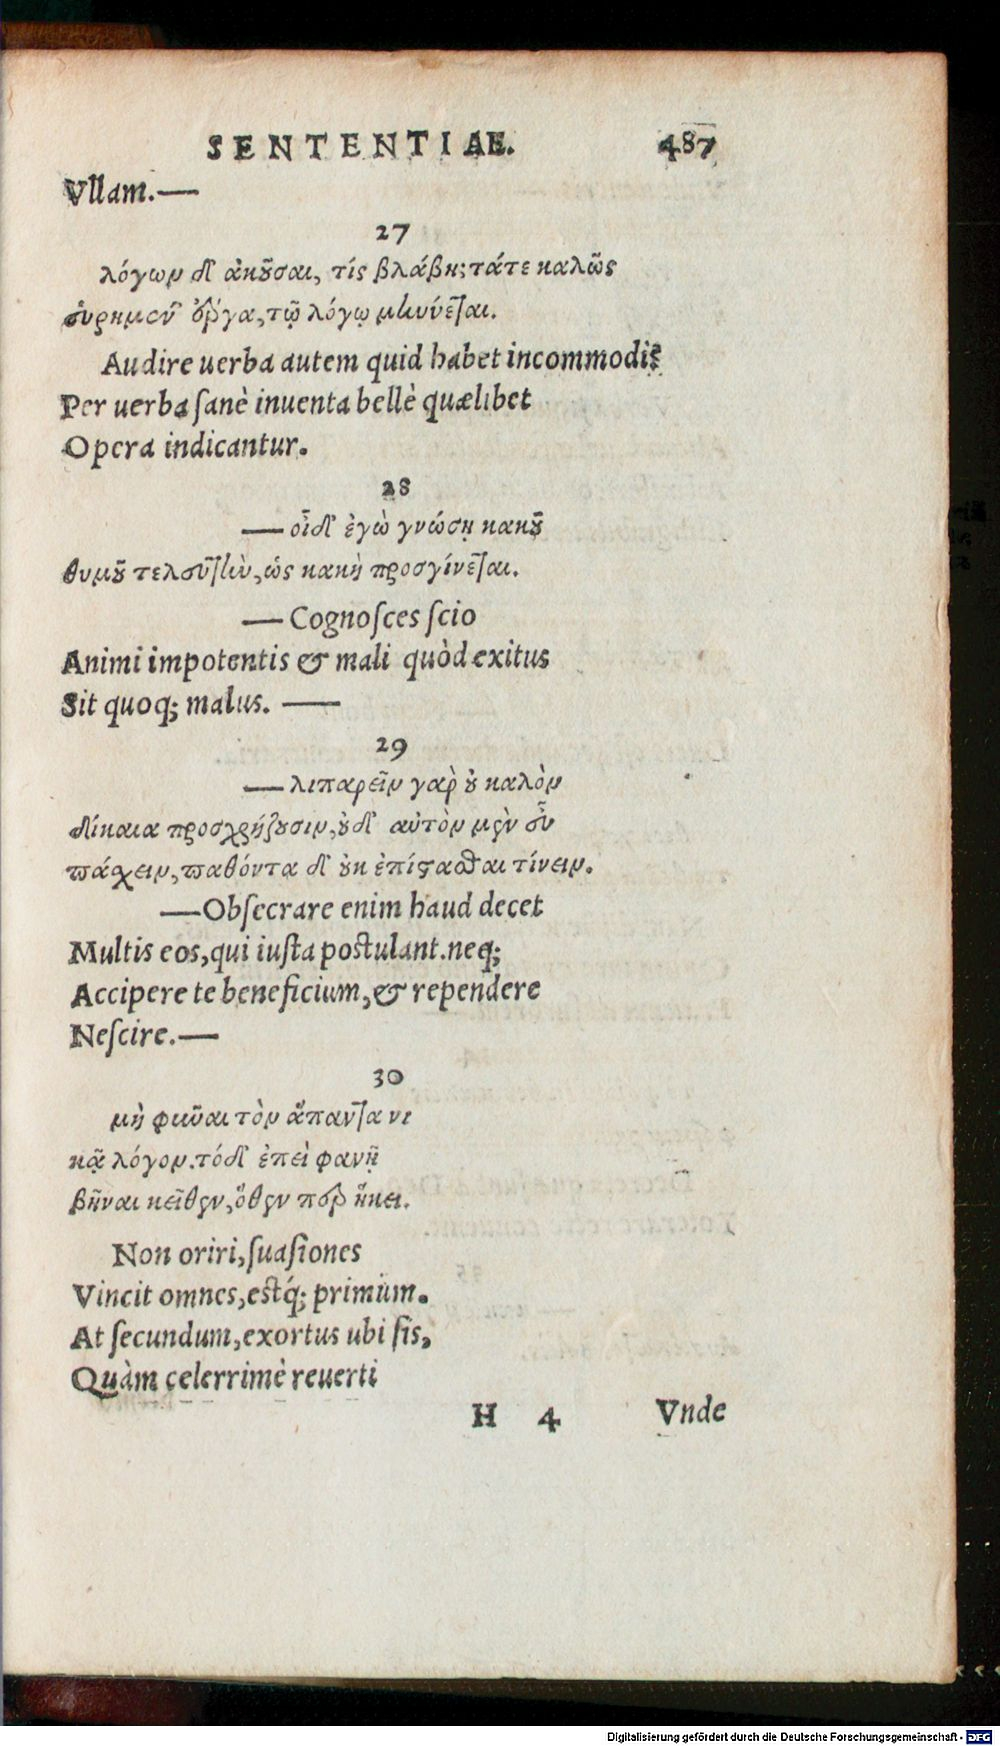 SENTENTIAE. 487
Vllam.—
27
λόγων δ' ἀκοῦσαι, τίς βλάβη; τάτε καλῶς
εὑρημέν' ἔργα, τῷ λόγῳ μηνύεται.
Audire uerba autem quid habet incommodi?
Per uerba ſanè inuenta bellè quælibet
Opera indicantur.
28
— οἶδ' ἐγὼ γνώσῃ κακοῦ
θυμοῦ τελευτὴν, ὡς κακὴ προσγίνεται.
—Cognoſces ſcio
Animi impotentis & mali quòd exitus
Sit quoq; malus. —
29
— λιπαρεῖν γὰρ οὐ καλὸν
δίκαια προσχρῄζουσιν, οὐδ' αὐτὸν μὲν εὖ
πάσχειν, παθόντα δ' οὐκ ἐπίστασθαι τίνειν.
—Obſecrare enim haud decet
Multis eos, qui iuſta poſtulant. neq;
Accipere te beneficium, & rependere
Neſcire.—
30
μὴ φῦναι τὸν ἅπαντα νι
κᾷ λόγον. τόδ' ἐπεὶ φανῇ
βῆναι κεῖθεν, ὅθεν περ ἥκει.
Non oriri, ſuaſiones
Vincit omnes, eſtq́; primum.
At ſecundum, exortus ubi ſis,
Quàm celerrimè reuerti
H 4 Vnde
Digitalisierung gefördert durch die Deutsche Forschungsgemeinschaft - DFG